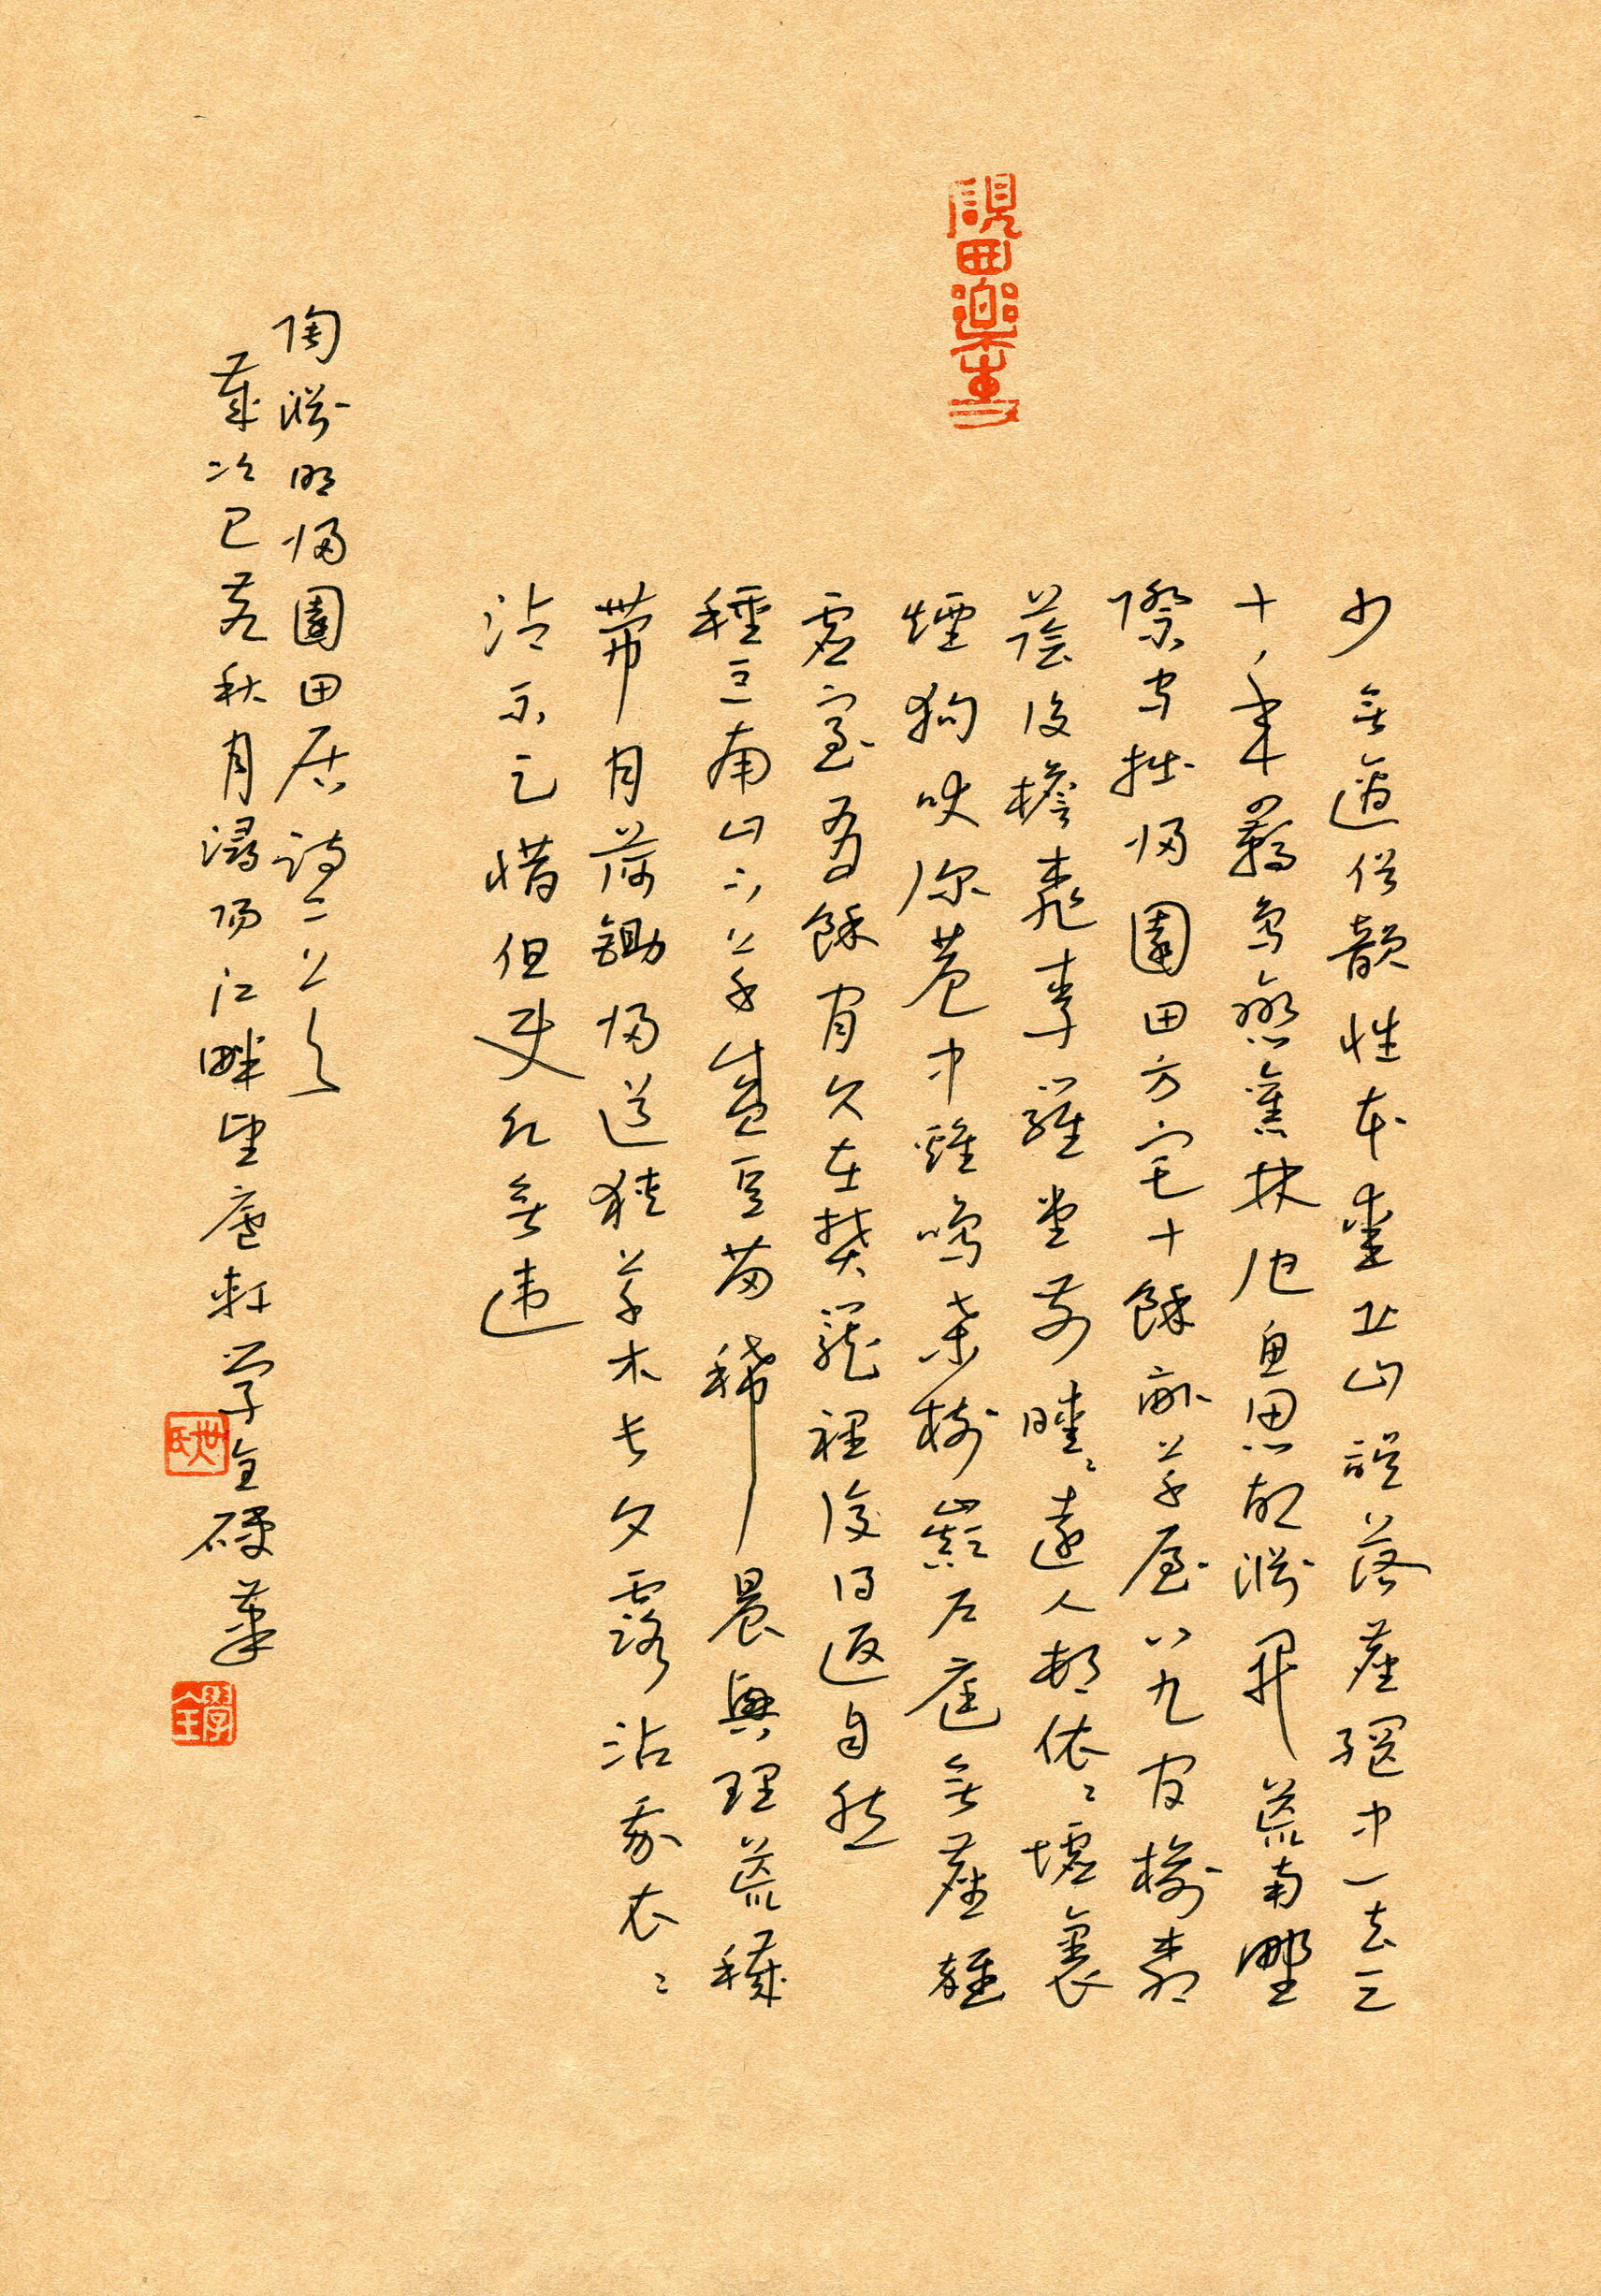 少無適俗韻性本愛丘山誤落塵網中一去三
十年羈鳥戀舊林池魚思故淵開荒南野
際守拙歸園田方宅十餘畝草屋八九間榆柳
蔭後檐桃李羅堂前曖々遠人村依々墟裏
煙狗吠深巷中雞鳴桑樹巔戶庭無塵雜
虛室有餘間久在樊籠裡復得返自然
種豆南山下草盛豆苗稀晨興理荒穢
帶月荷鋤歸道狹草木長夕露沾我衣々
沾不足惜但使願無違
陶淵明歸園田居詩二首
歲次己亥秋月潯陽江畔望廬軒學全硬筆
學全